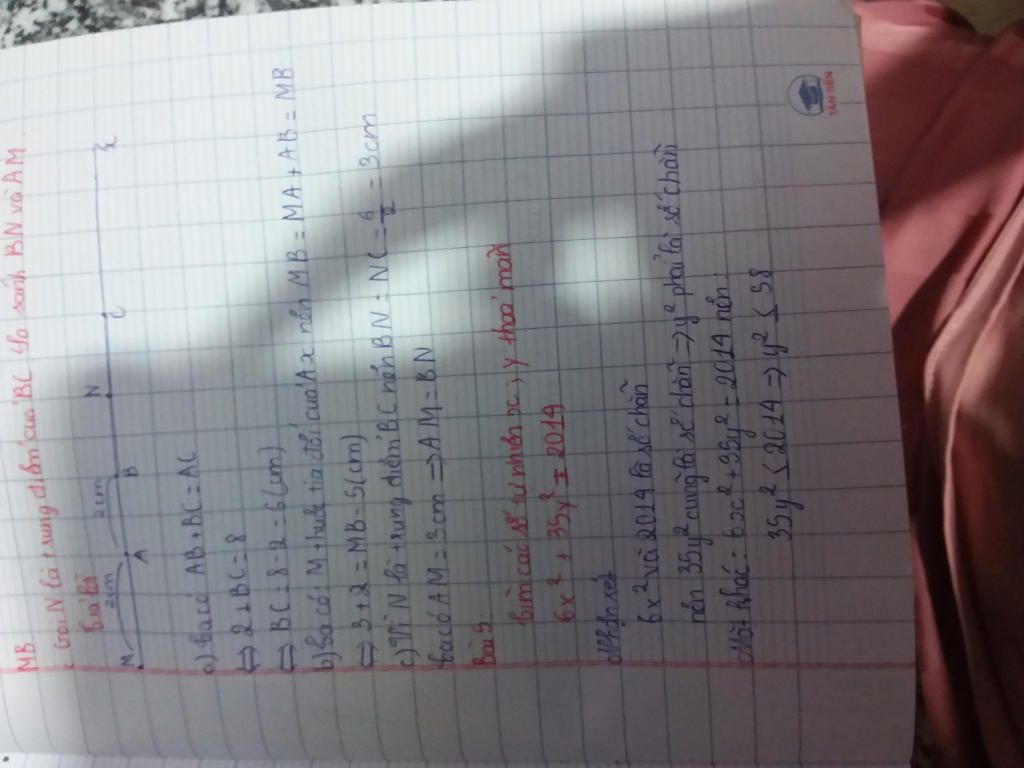 MB
c Gọi N là trung điểm của BC so sánh BN và AM
trả lời
M 2cm A 2cm B N C x
a) ta có AB + BC = AC
⇔ 2 + BC = 8
⇔ BC = 8 - 2 = 6 (cm)
b) ta có M thuộc tia đối của Ax nên MB = MA + AB = MB
⇔ 3 + 2 = MB = 5 (cm)
c) Vì N là trung điểm BC nên BN = NC = 6/2 = 3cm
ta có AM = 3cm ⇒ AM = BN
Bài 5.
tìm các số tự nhiên x, y thoả mãn
6x² + 35y² = 2014
Nhận xét
6x² và 2014 là số chẵn
nên 35y² cũng là số chẵn ⇒ y² phải là số chẵn
Mặt khác: 6x² + 35y² = 2014 nên:
35y² ≤ 2014 ⇒ y² ≤ 58
TÂN TIẾN